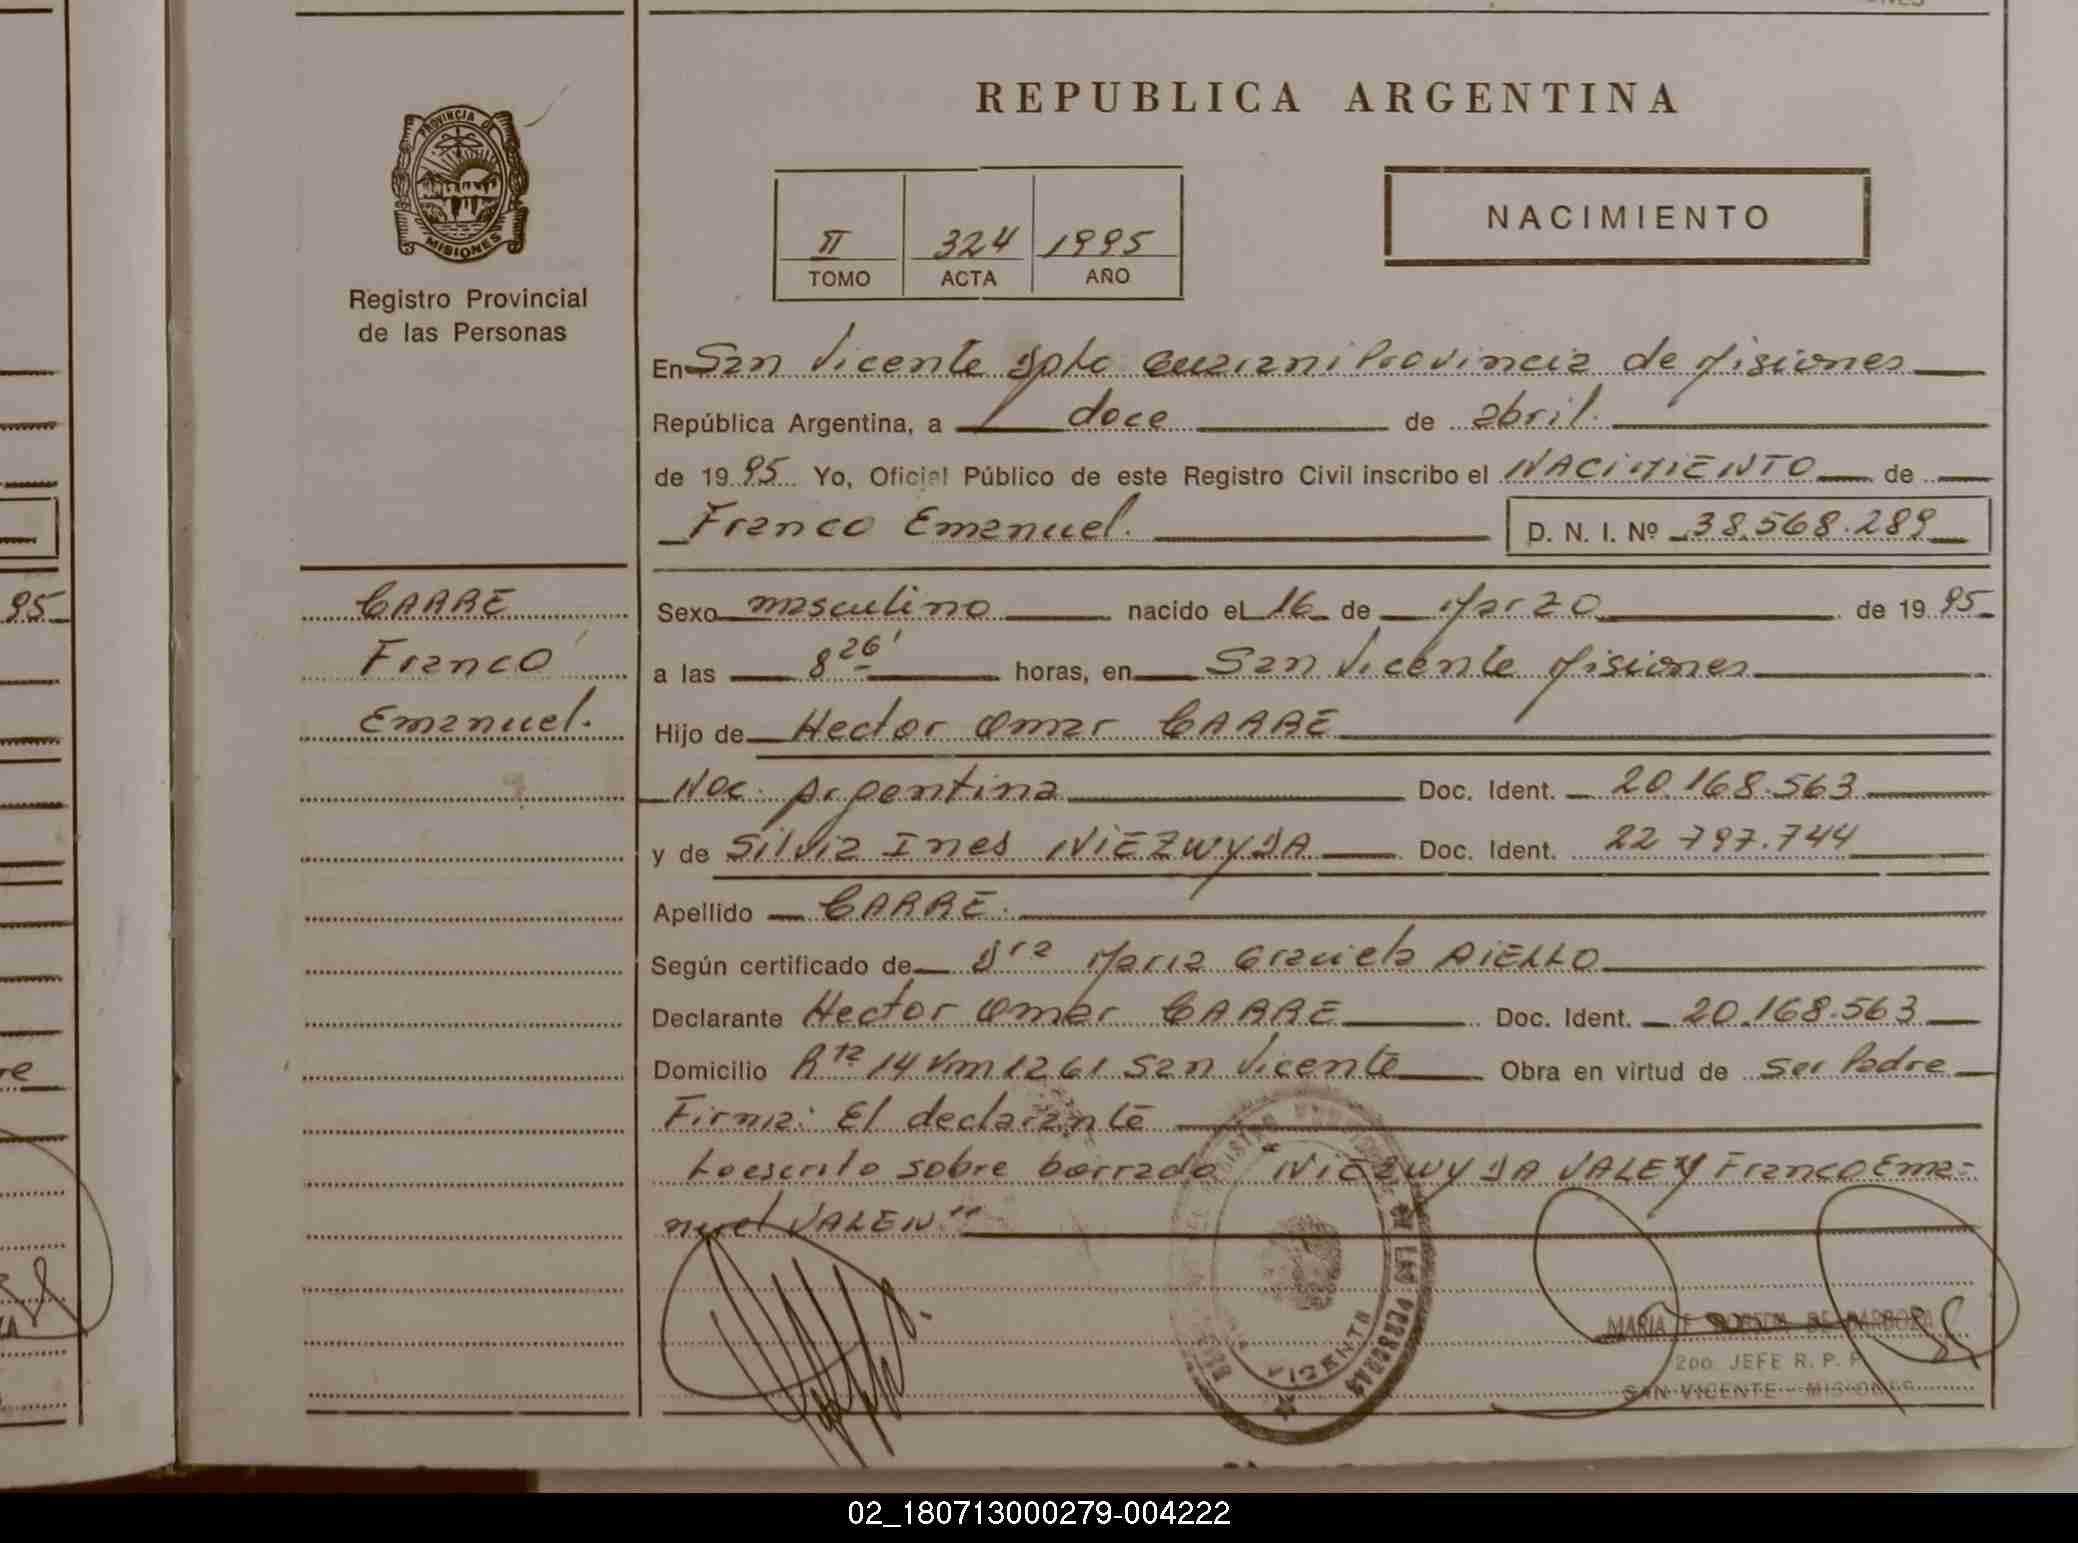 REPUBLICA ARGENTINA
PROVINCIA DE
MISIONES
Registro Provincial
de las Personas
II 324 1995
TOMO ACTA AÑO
NACIMIENTO
En San Vicente Dpto Guarani Provincia de Misiones
República Argentina, a doce de abril.
de 19 95 Yo, Oficial Público de este Registro Civil inscribo el NACIMIENTO de
Franco Emanuel. D. N. I. Nº 38.568.289
CARRE
Franco
Emanuel.
Sexo masculino nacido el 16 de Marzo de 19 95
a las 8 26' horas, en San Vicente Misiones
Hijo de Hector Omar CARRE
Nac. Argentina Doc. Ident. 20.168.563
y de Silvia Ines NIEZWYDA Doc. Ident. 22 797.744
Apellido CARRE.
Según certificado de Dra Maria Graciela AIELLO
Declarante Hector Omar CARRE Doc. Ident. 20.168.563
Domicilio Rta 14 Km 1261 San Vicente Obra en virtud de ser Padre
Firma: El declarante
Lo escrito sobre borrado "NIEZWYDA VALE y Franco Ema=
nuel VALEN"
VICENTE
LAS PERSONAS
MARIA DE BARBOZA
2DO JEFE R. P. P.
SAN VICENTE - MISIONES
95
re
02_180713000279-004222